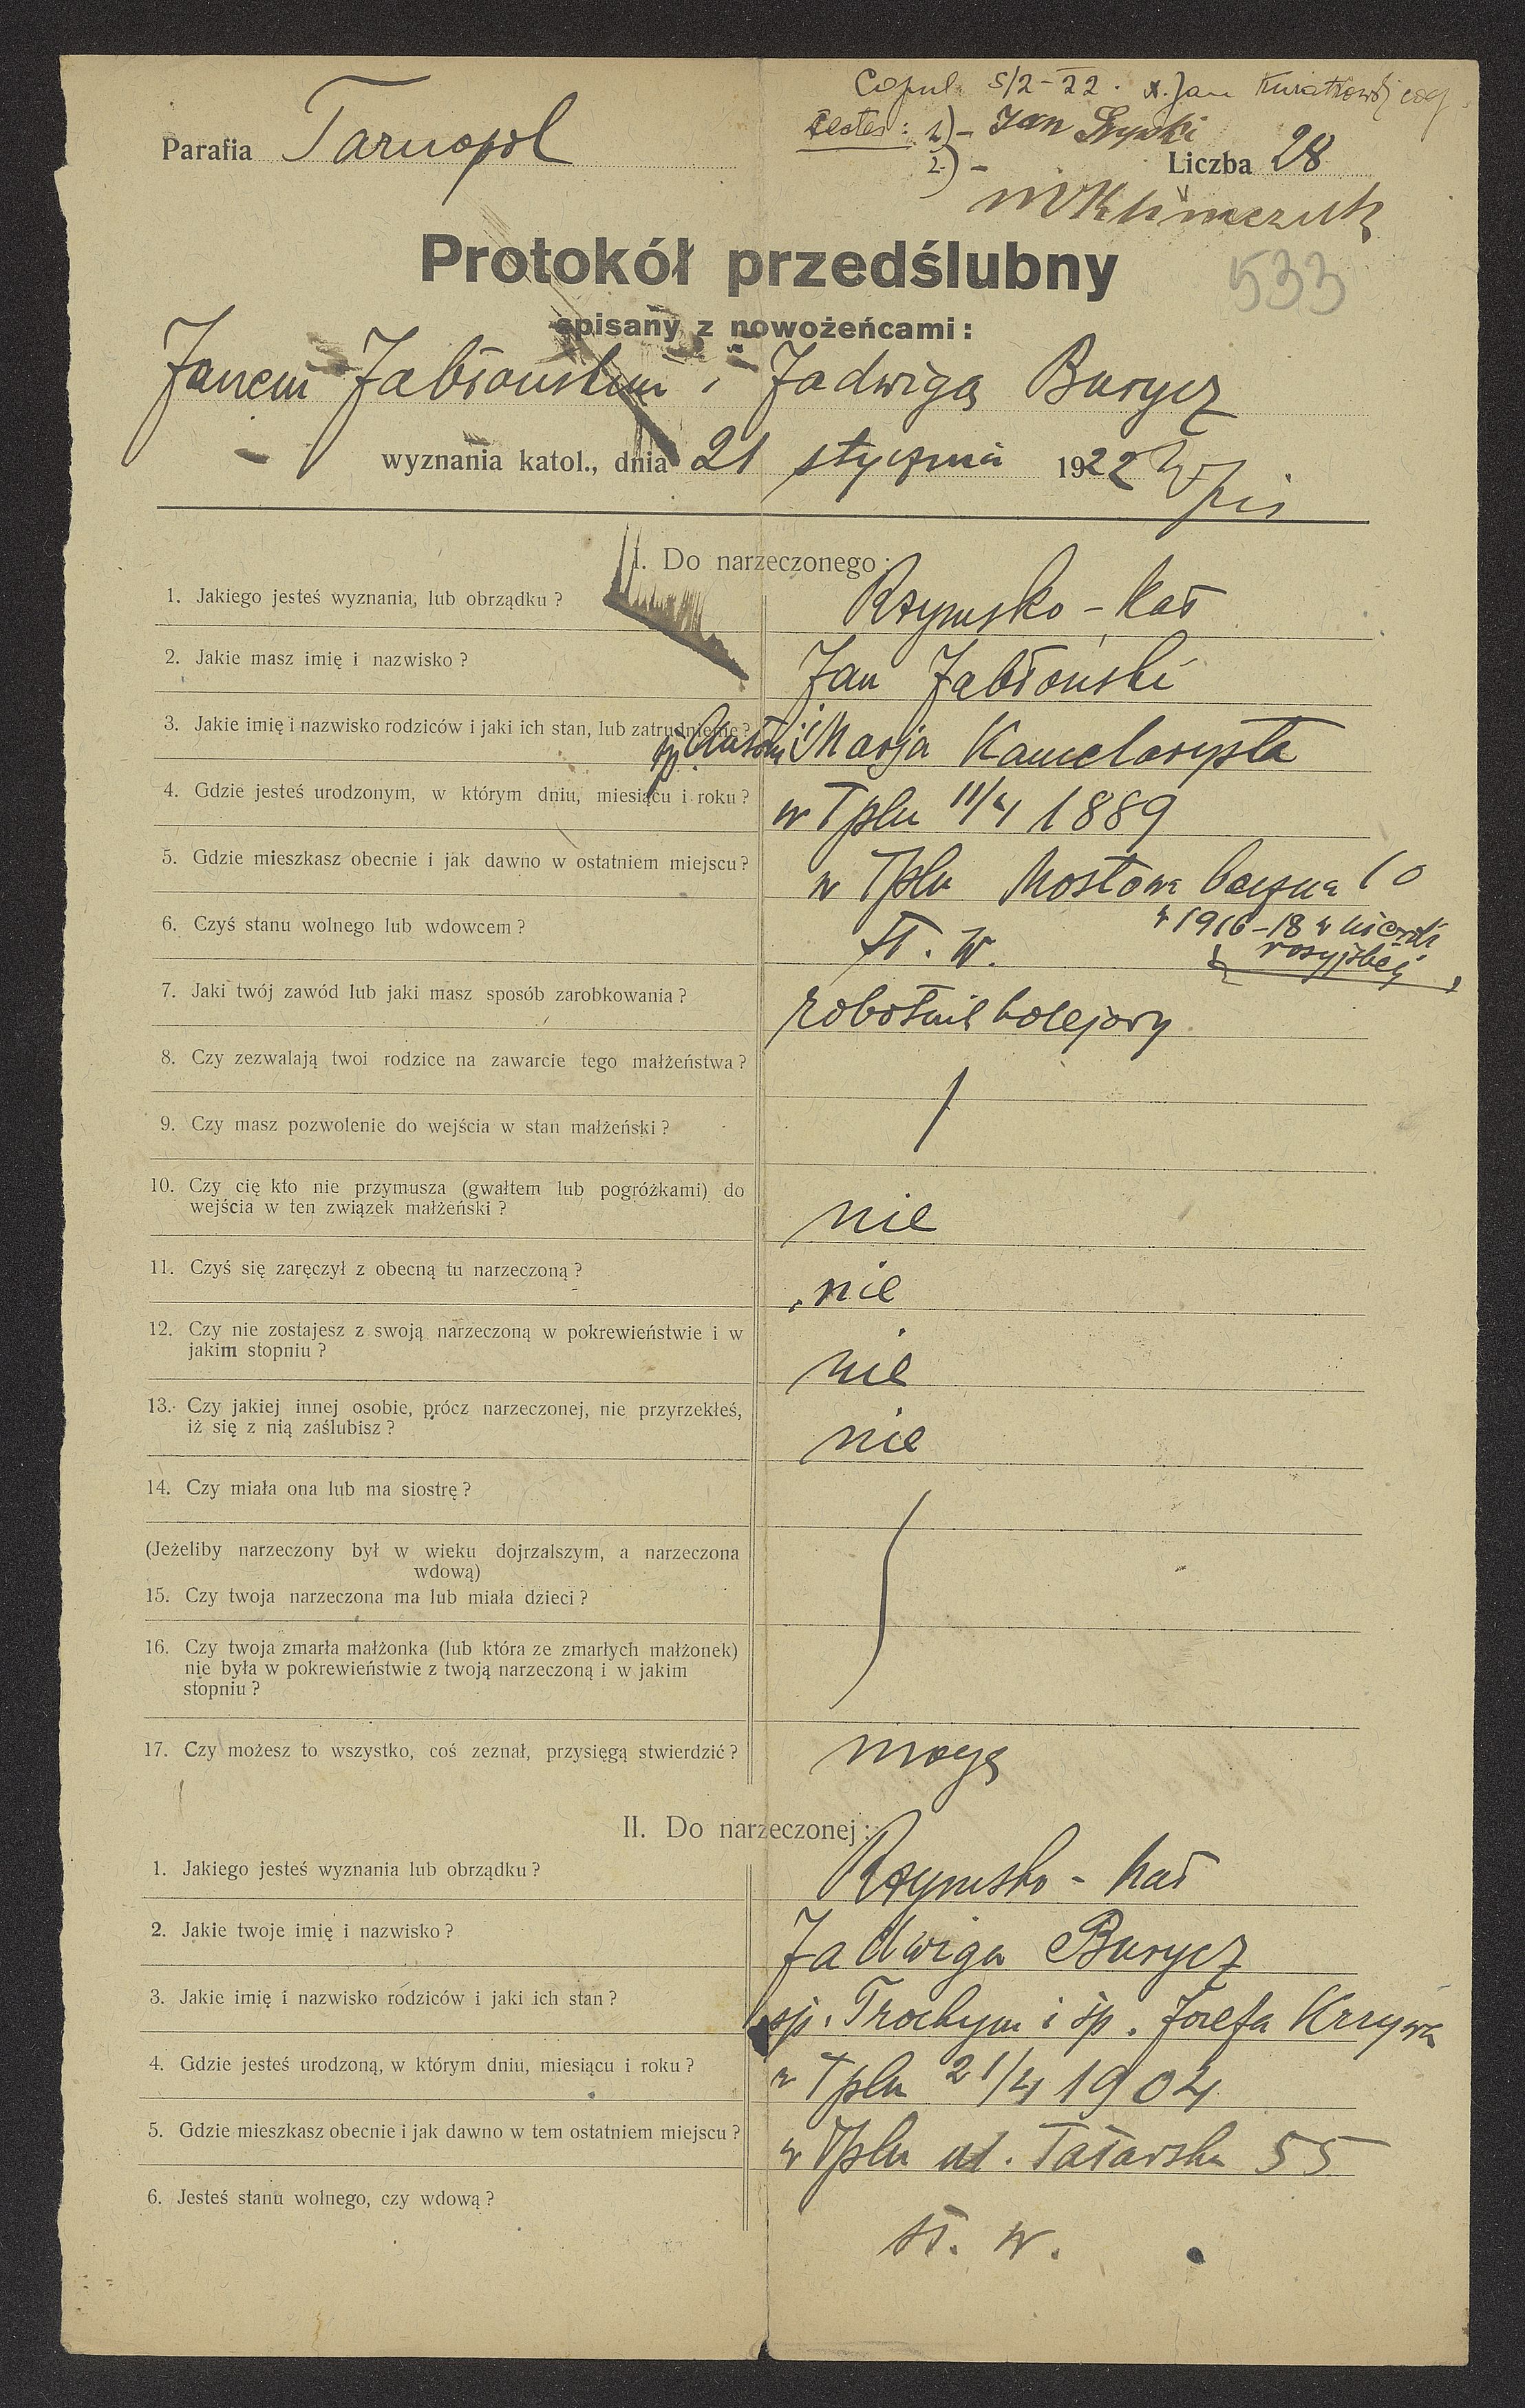 Copul. 5/2-22. X. Jan Kwiatkowski
testes: 1) - Jan
Parafia Tarnopol
Liczba 28
2) -
M Klimczuk
Protokół przedślubny
533
spisany z nowożeńcami:
Janem Jabłońskim i Jadwigą Burycz
wyznania katol., dnia 21 stycznia 1922
I. Do narzeczonego:
1. Jakiego jesteś wyznania, lub obrządku? Rzymsko-kat
2. Jakie masz imię i nazwisko? Jan Jabłoński
3. Jakie imię i nazwisko rodziców i jaki ich stan, lub zatrudnienie? śp. Antoni i Marja Kancelarysta
4. Gdzie jesteś urodzonym, w którym dniu, miesiącu i roku? w Tplu 11/4 1889
5. Gdzie mieszkasz obecnie i jak dawno w ostatniem miejscu? w Tplu Mostowa boczna 10
w 1916-18 w niewoli
rosyjskiej
6. Czyś stanu wolnego lub wdowcem? st. w.
7. Jaki twój zawód lub jaki masz sposób zarobkowania? robotnik kolejowy
8. Czy zezwalają twoi rodzice na zawarcie tego małżeństwa?
9. Czy masz pozwolenie do wejścia w stan małżeński?
10. Czy cię kto nie przymusza (gwałtem lub pogróżkami) do
wejścia w ten związek małżeński? nie
11. Czyś się zaręczył z obecną tu narzeczoną? nie
12. Czy nie zostajesz z swoją narzeczoną w pokrewieństwie i w
jakim stopniu? nie
13. Czy jakiej innej osobie, prócz narzeczonej, nie przyrzekłeś,
iż się z nią zaślubisz? nie
14. Czy miała ona lub ma siostrę?
(Jeżeliby narzeczony był w wieku dojrzalszym, a narzeczona
wdową)
15. Czy twoja narzeczona ma lub miała dzieci?
16. Czy twoja zmarła małżonka (lub która ze zmarłych małżonek)
nie była w pokrewieństwie z twoją narzeczoną i w jakim
stopniu?
17. Czy możesz to wszystko, coś zeznał, przysięgą stwierdzić? mogę
II. Do narzeczonej:
1. Jakiego jesteś wyznania lub obrządku? Rzymsko-kat
2. Jakie twoje imię i nazwisko? Jadwiga Burycz
3. Jakie imię i nazwisko rodziców i jaki ich stan? śp. Trochym i śp. Józefa Krzywa
4. Gdzie jesteś urodzoną, w którym dniu, miesiącu i roku? w Tplu 21/4 1904
5. Gdzie mieszkasz obecnie i jak dawno w tem ostatniem miejscu? w Tplu ul. Tatarska 55
6. Jesteś stanu wolnego, czy wdową? st. w.